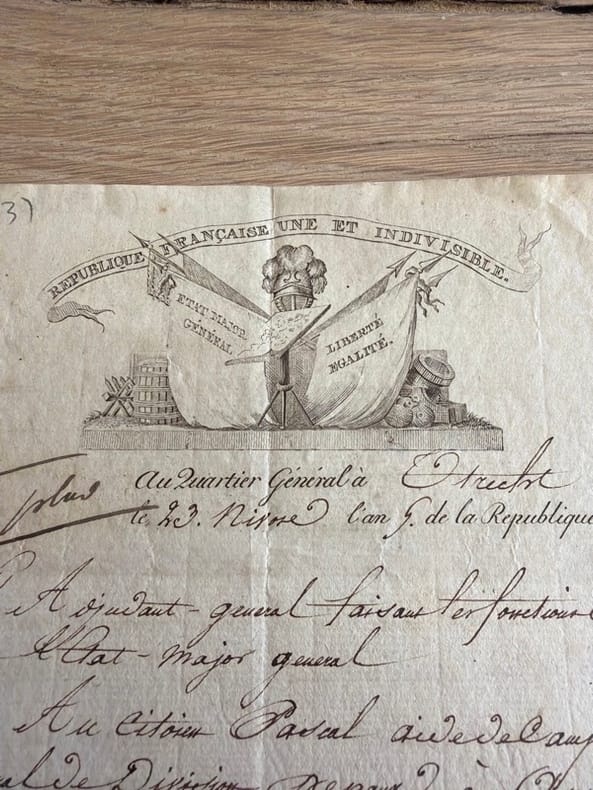 3)
REPUBLIQUE FRANÇAISE UNE ET INDIVISIBLE.
ETAT MAJOR
GÉNÉRAL
LIBERTÉ
EGALITÉ.
Au Quartier Général à Utrecht
plus
le 23. Nivose l'an 5. de la Republique
Adjudant-general faisant les fonctions
l'Etat-major general
Au citoien Pascal aide de Camp
de Division